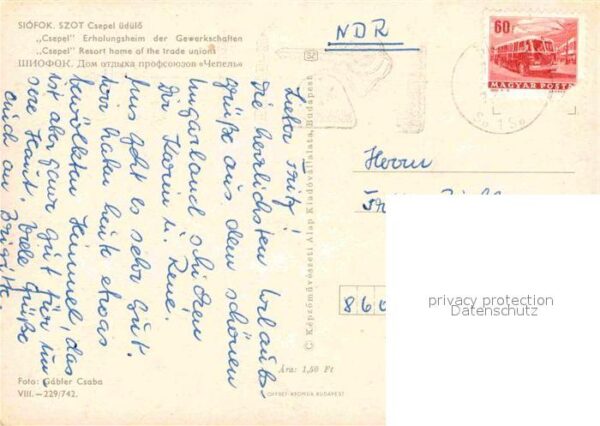 SIÓFOK. SZOT Csepel üdülő
„Csepel" Erholungsheim der Gewerkschaften
„Csepel" Resort home of the trade unions
ШИОФОК. Дом отдыха профсоюзов «Чепель»
NDR
60f
MAGYAR POSTA
Lieber Fritz!
Die herzlichsten Urlaubs-
grüße aus dem schönen
Ungarland schicken
Dir Karin u. René.
Uns geht es sehr gut.
Wir haben heute etwas
bewölkten Himmel, das
ist aber ganz gut für un-
sere Haut. Viele Grüße
auch an Brigitte.
© Képzőművészeti Alap Kiadóvállalata, Budapest
Herrn
860
privacy protection
Datenschutz
Ára: 1,50 Ft
Foto: Gábler Csaba
VIII.—229/742.
OFFSET-KOZMOSZ BUDAPEST